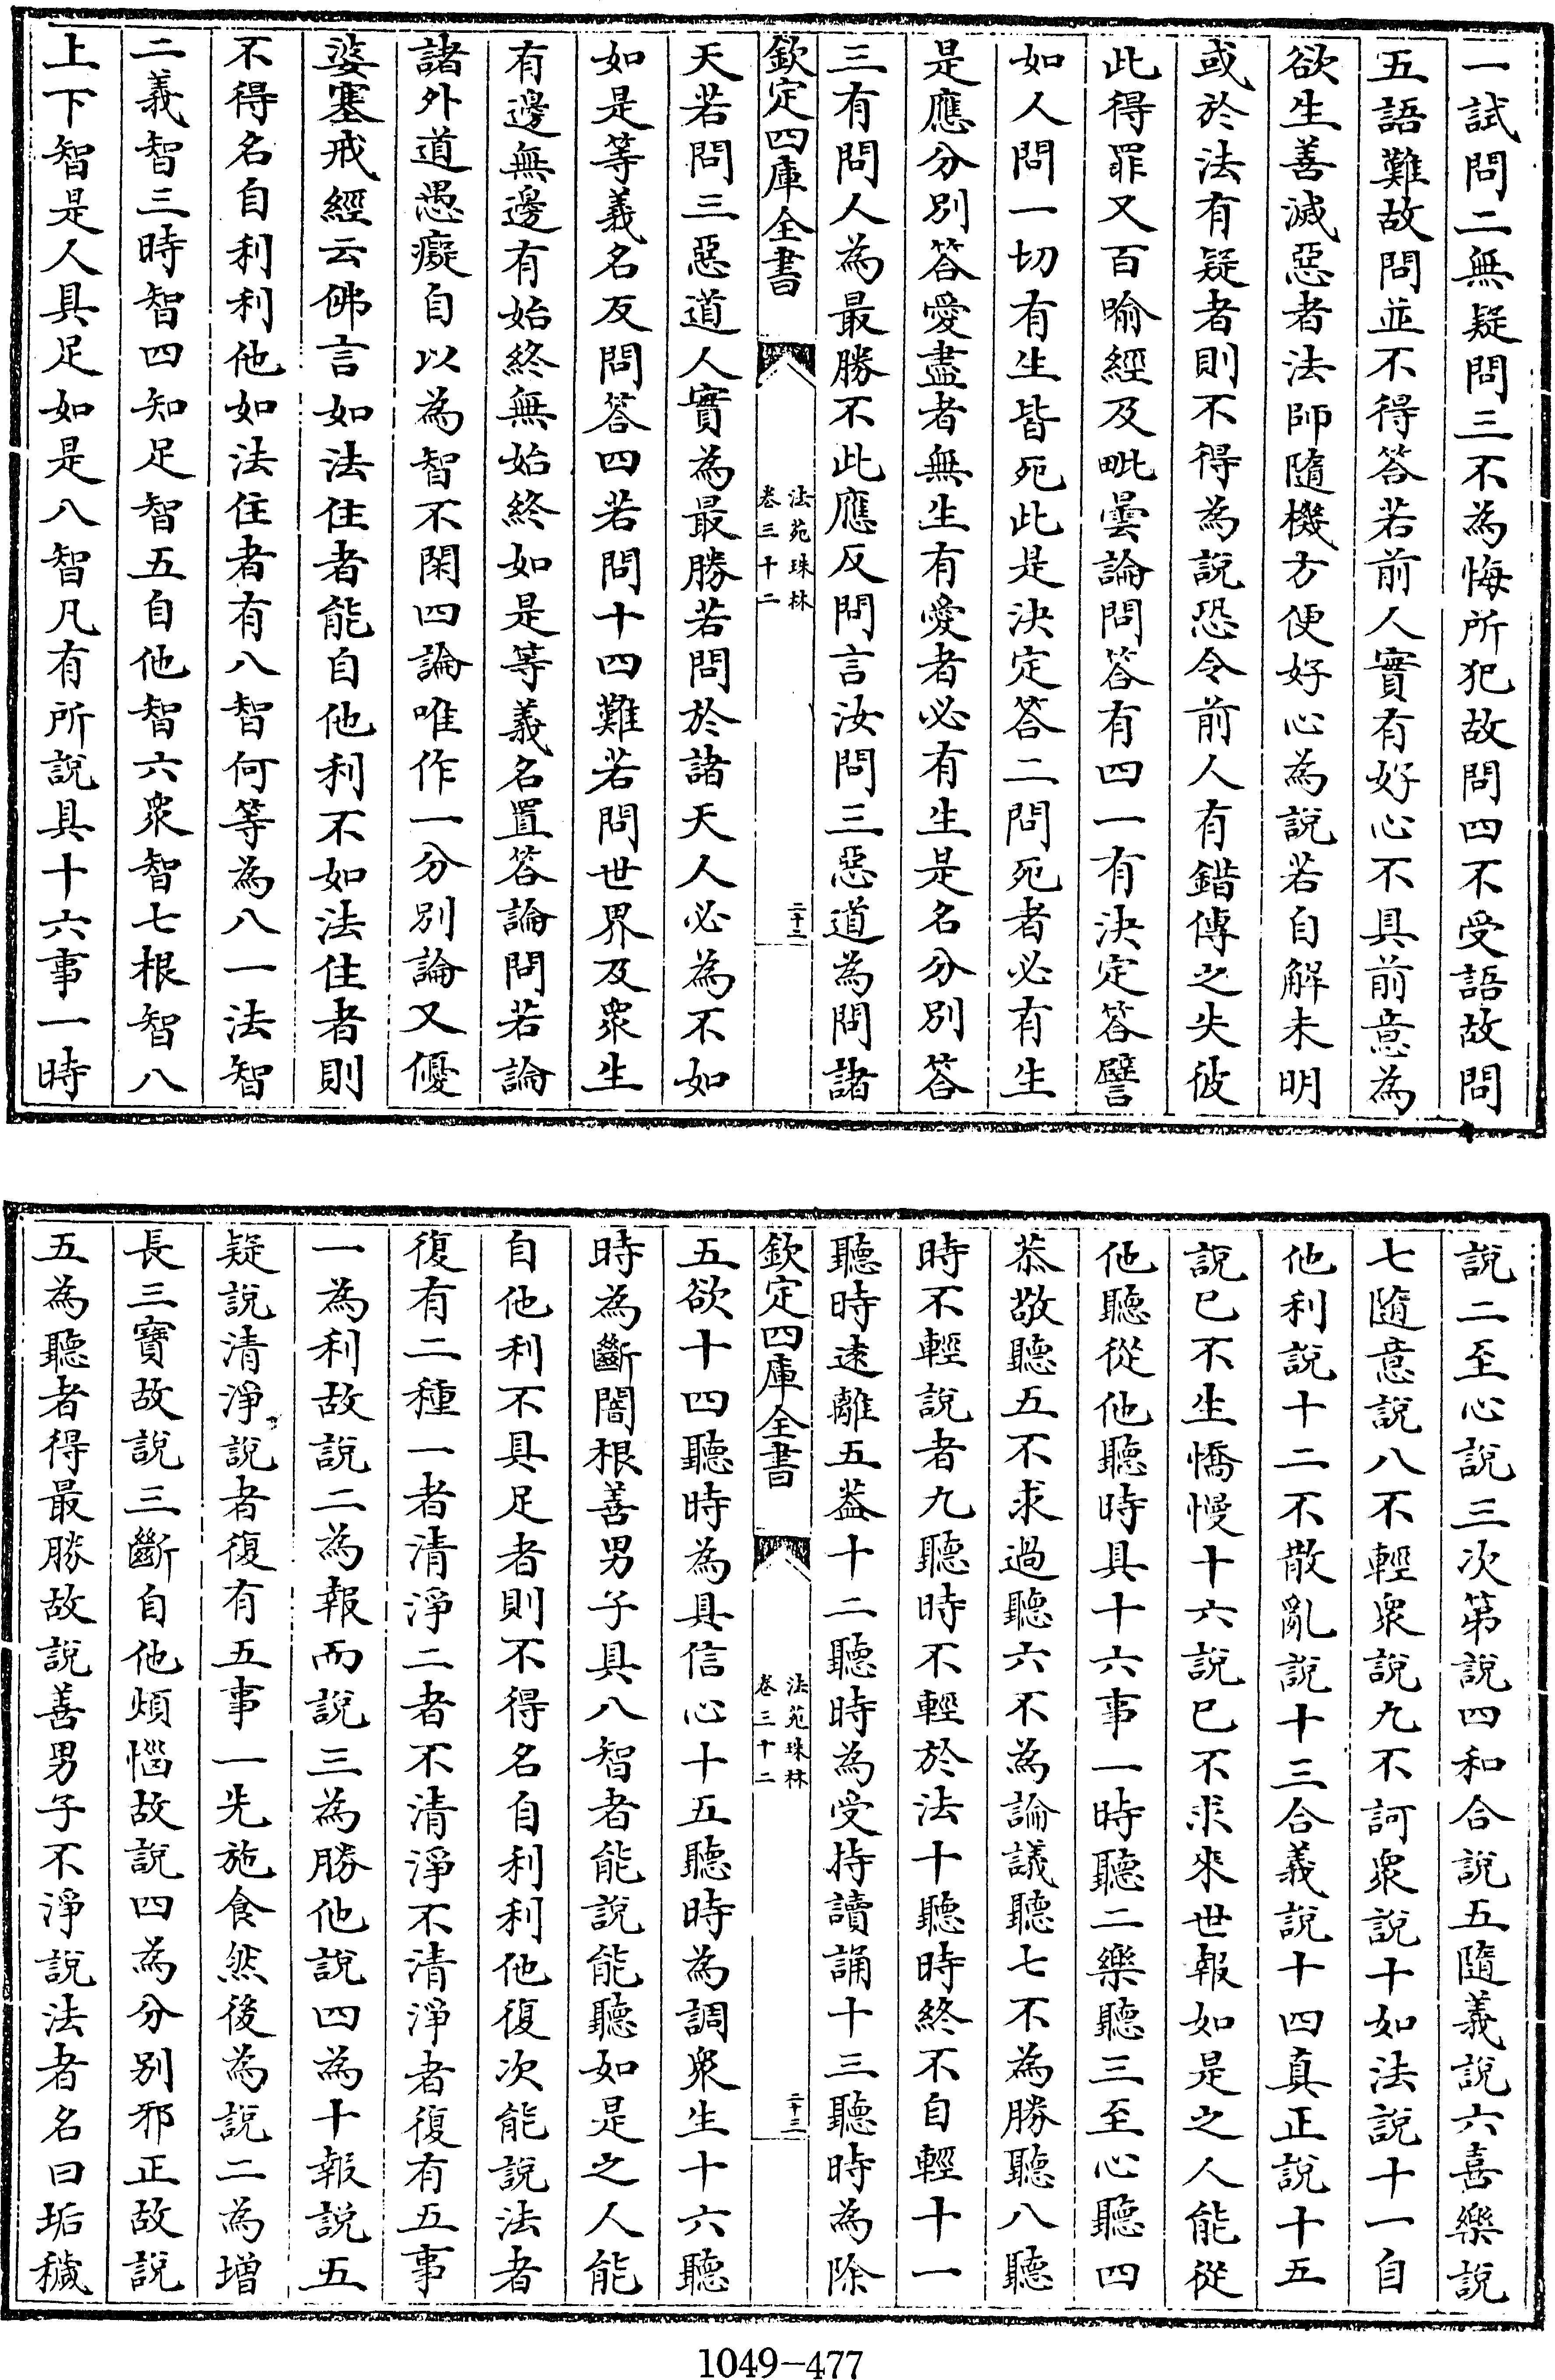 一試問二無疑問三不為悔所犯故問四不受語故問
五語難故問並不得答若前人實有好心不具前意為
欲生善滅惡者法師隨機方便好心為說若自解未明
或於法有疑者則不得為說恐令前人有錯傳之失彼
此得罪又百喻經及毗曇論問答有四一有決定答譬
如人問一切有生皆死此是決定答二問死者必有生
是應分別答愛盡者無生有愛者必有生是名分別答
三有問人為最勝不此應反問言汝問三惡道為問諸
欽定四庫全書
法苑珠林
卷三十二
二十二
天若問三惡道人實為最勝若問於諸天人必為不如
如是等義名反問答四若問十四難若問世界及衆生
有邊無邊有始終無始終如是等義名置答論問若論
諸外道愚癡自以為智不閑四論唯作一分別論又優
婆塞戒經云佛言如法住者能自他利不如法住者則
不得名自利利他如法住者有八智何等為八一法智
二義智三時智四知足智五自他智六衆智七根智八
上下智是人具足如是八智凡有所說具十六事一時
說二至心說三次第說四和合說五隨義說六喜樂說
七隨意說八不輕衆說九不訶衆說十如法說十一自
他利說十二不散亂說十三合義說十四真正說十五
說已不生憍慢十六說已不求來世報如是之人能從
他聽從他聽時具十六事一時聽二樂聽三至心聽四
恭敬聽五不求過聽六不為論議聽七不為勝聽八聽
時不輕說者九聽時不輕於法十聽時終不自輕十一
聽時遠離五葢十二聽時為受持讀誦十三聽時為除
欽定四庫全書
法苑珠林
卷三十二
二十三
五欲十四聽時為具信心十五聽時為調衆生十六聽
時為斷闇根善男子具八智者能說能聽如是之人能
自他利不具足者則不得名自利利他復次能說法者
復有二種一者清淨二者不清淨不清淨者復有五事
一為利故說二為報而說三為勝他說四為十報說五
疑說清淨說者復有五事一先施食然後為說二為增
長三寶故說三斷自他煩惱故說四為分別邪正故說
五為聽者得最勝故說善男子不淨說法者名曰垢穢
1049-477